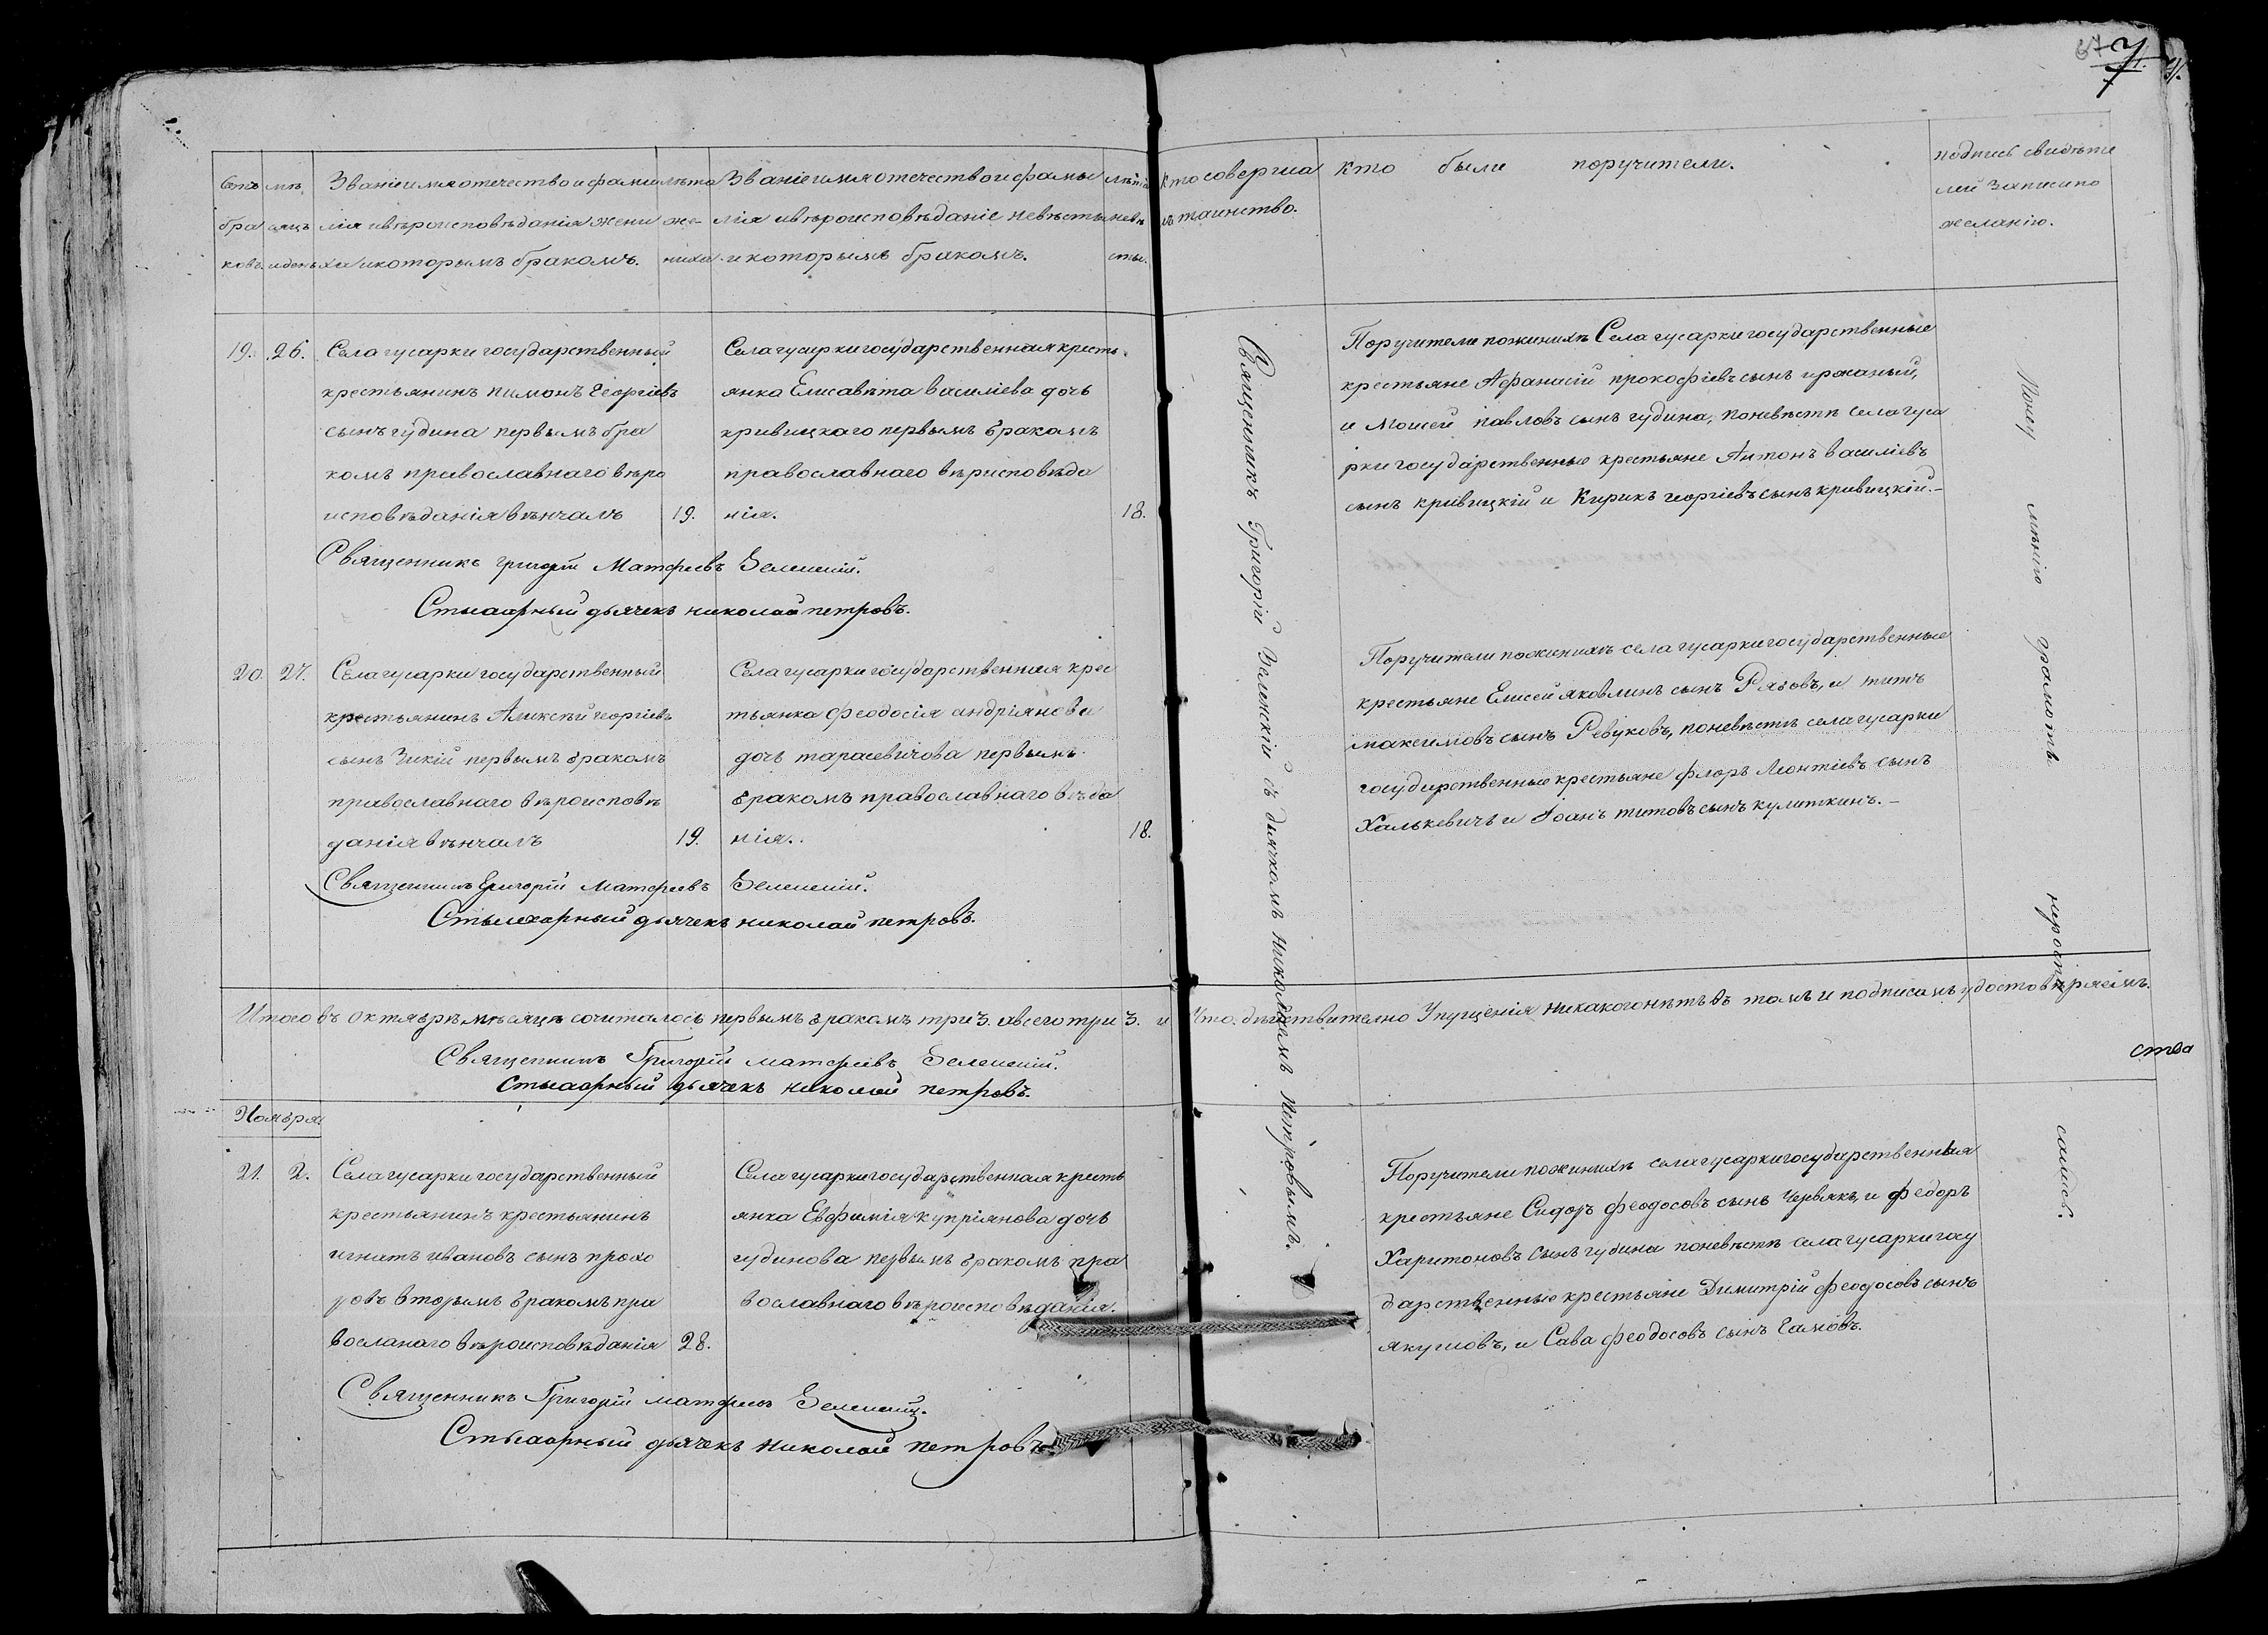 71.
Счетъ мѣ Званіе имя отечество и фами лѣта Званіе имя отечество и фами лѣта Кто соверша кто были поручители. подпись свидѣте
бра сяцъ лія и вѣроисповѣданія жени же- лія и вѣроисповѣданіе невѣсты невѣ лъ таинство. лей записи по
ковъ. и день ха и которымъ бракомъ. ниха. и которымъ бракомъ. сты. желанію.
19. 26. Села гусарки государственный
крестьянинъ пимонъ георгіевъ
сынъ гудина первымъ бра
комъ православнаго вѣро
исповѣданія вѣнчалъ 19.
Села гусарки государственная кресть
янка Елисавѣта василіева дочь
кривицкаго первымъ бракомъ
православнаго вѣрисповѣда
нія. 18.
Поручители по женихѣ Села гусарки государственные
крестьяне Афанасій прокофіевъ сынъ иржаный,
и Мойсей павловъ сынъ гудина, по невѣстѣ села гуса
рки государственные крестьяне Антонъ василіевъ
сынъ кривицкій и Кирикъ георгіевъ сынъ кривицкій.-
Священникъ григорій Матфеевъ Зеленскій.
Стихарный дьячекъ николай петровъ.
20. 27. Села гусарки государственный
крестьянинъ Алексѣй георгіевъ
сынъ Зикій первымъ бракомъ
православнаго вѣроисповѣ
данія вѣнчалъ 19.
Села гусарки государственная крес
тьянка феодосія андріянова
дочь тарасевичова первымъ
бракомъ православнаго вѣда
нія. 18.
Поручители по женихѣ села гусарки государственные
крестьяне Елисей яковлинъ сынъ Рябовъ, и титъ
максимовъ сынъ Ревуковъ, по невѣстѣ села гусарки
государственные крестьяне флоръ Леонтіевъ сынъ
Халькевичъ и Іоанъ титовъ сынъ кулиткинъ.-
Священникъ Григорій Матфеевъ Зеленскій.
Стихарный дьячекъ николай петровъ.
Священникъ Григорій Зеленскій съ дьячкомъ николаемъ петровымъ.
По неумѣнію грамотѣ неросписались.
Итого въ октябрѣ мѣсяцѣ сочиталось первымъ бракомъ три 3. а всего три 3. и Что дѣйствително Упущенія никакого нѣтъ въ томъ и подписомъ удостовѣряемъ.
ства
Священникъ Григорій матфеевъ Зеленскій.
Стихарный дьячекъ николай петровъ.
Ноября
21. 2. Села гусарки государственный
крестьянинъ крестьянинъ
игнатъ ивановъ сынъ прохо
ровъ вторымъ бракомъ пра
вославнаго вѣроисповѣданія 28.
Села гусарки государственная кресть
янка Евфимія купріянова дочь
гудинова первымъ бракомъ пра
вославнаго вѣроисповѣданія.
Поручители по женихѣ села гусарки государственныя
крестьяне Сидоръ феодосовъ сынъ Червякъ, и федоръ
Харитоновъ сынъ гудина по невѣстѣ села гусарки госу
дарственные крестьяне Димитрій феодосовъ сынъ
якушовъ, и Сава феодосовъ сынъ Гамовъ.
Священникъ Григорій матфеевъ Зеленскій.
Стихарный дьячекъ николай петровъ.